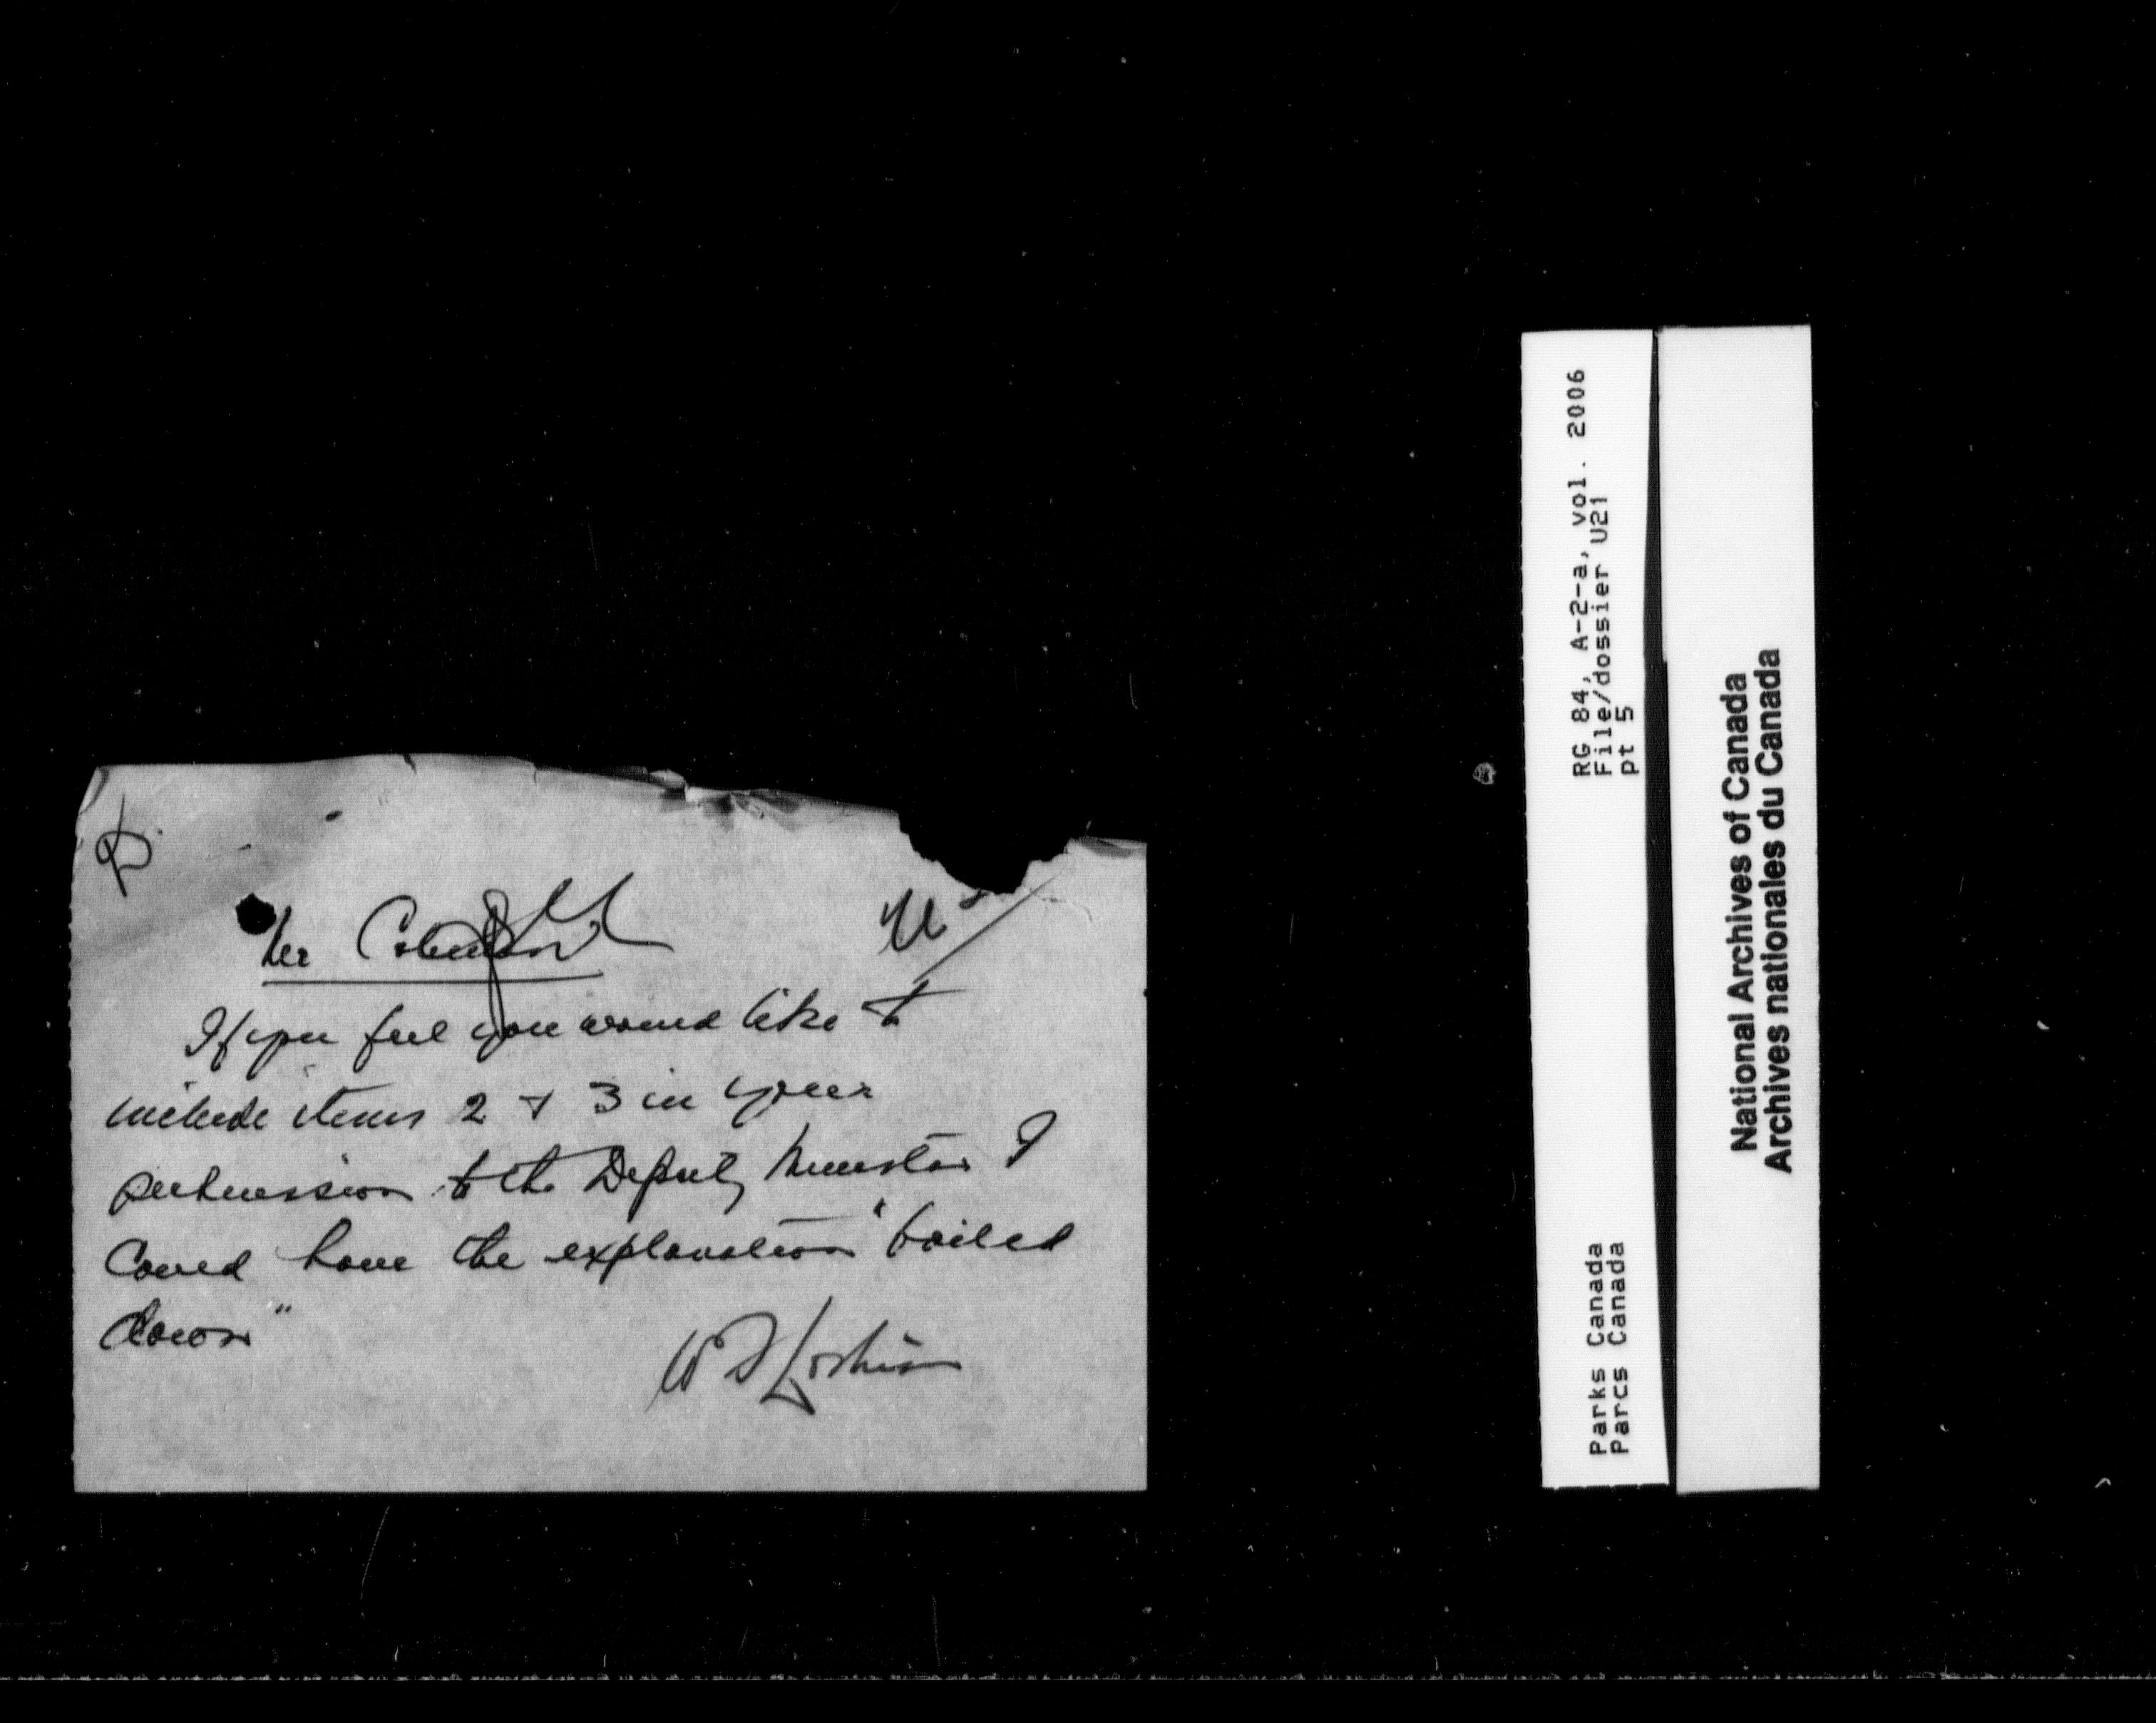 Mr Coleman
If you feel you would like to
include items 2 + 3 in your
submission to the Deputy Minister I
could have the explanation "boiled
down"
RG 84, A-2-a, vol. 2006
File/dossier U21
pt 5
Parks Canada
Parcs Canada
National Archives of Canada
Archives nationales du Canada